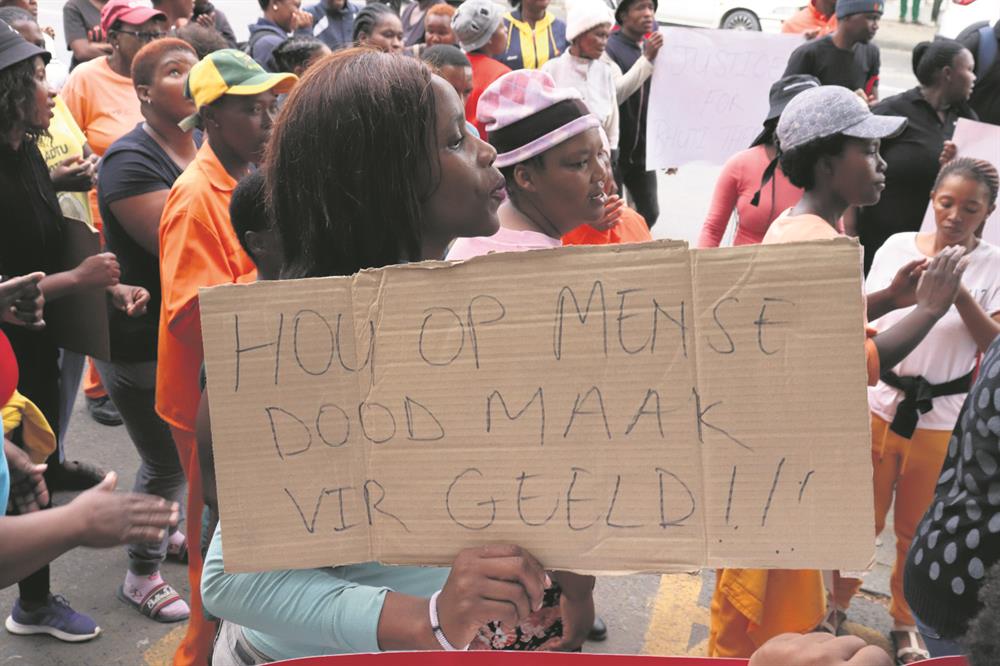 HOU OP MENSE
DOOD MAAK
VIR GEELD!!!
JUSTICE
FOR